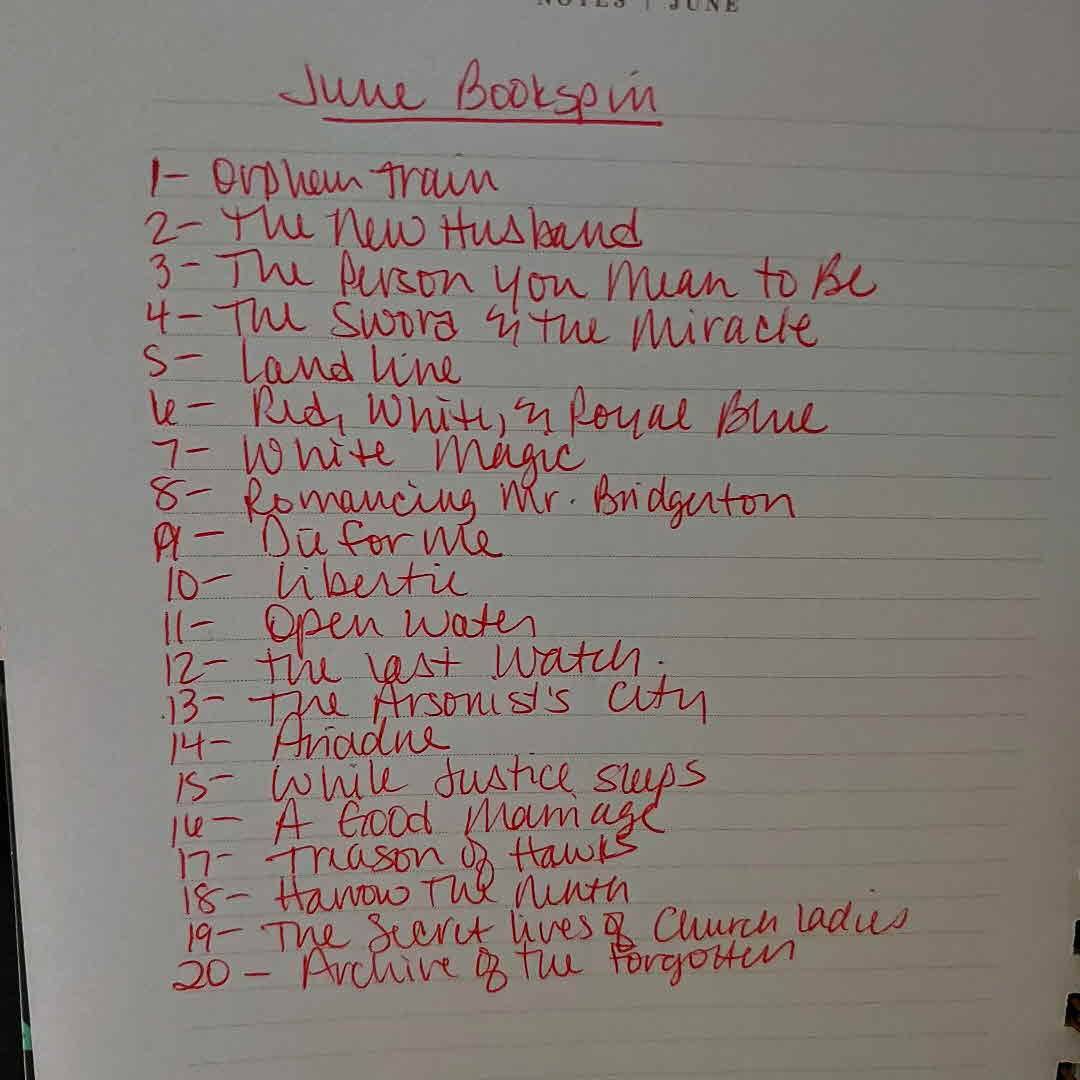 NOTES | JUNE
June Bookspin
1- Orphan train
2- The New Husband
3- The Person you Mean to Be
4- The Sword & the Miracle
5- Landline
6- Red, White, & Royal Blue
7- White Magic
8- Romancing Mr. Bridgerton
9- Die for Me
10- Libertie
11- Open Water
12- The Last Watch.
13- The Arsonist's City
14- Ariadne
15- While Justice Sleeps
16- A Good Marriage
17- Treason of Hawks
18- Harrow The Ninth
19- The Secret lives of Church ladies
20- Archive of the Forgotten